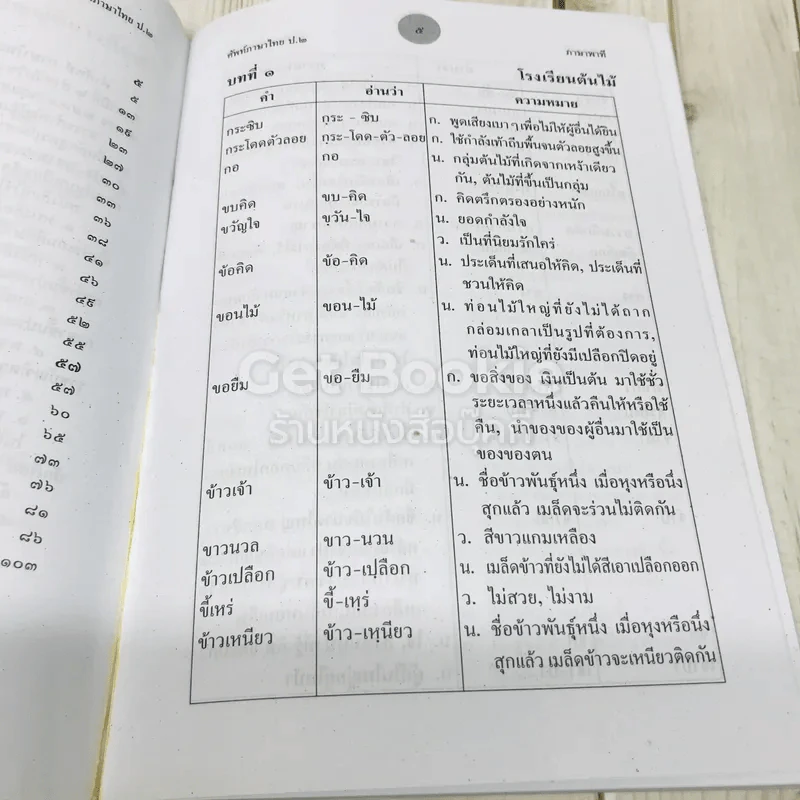 ภาษาไทย ป.๒
๕
๕
๑๓
๑๙
๒๓
๒๗
๓๐
๓๓
๓๖
๓๙
๔๑
๔๖
๔๙
๕๒
๕๕
๕๗
๕๗
๖๐
๖๕
๗๓
๗๖
๘๑
๘๖
๑๐๓
ศัพท์ภาษาไทย ป.๒ ๕ ภาษาพาที
บทที่ ๑ โรงเรียนต้นไม้
คำ อ่านว่า ความหมาย
กระซิบ กฺระ - ซิบ ก. พูดเสียงเบาๆ เพื่อไม่ให้ผู้อื่นได้ยิน
กระโดดตัวลอย กฺระ-โดด-ตัว-ลอย ก. ใช้กำลังเท้าถีบพื้นจนตัวลอยสูงขึ้น
กอ กอ น. กลุ่มต้นไม้ที่เกิดจากเหง้าเดียว
กัน, ต้นไม้ที่ขึ้นเป็นกลุ่ม
ขบคิด ขบ-คิด ก. คิดตรึกตรองอย่างหนัก
ขวัญใจ ขฺวัน-ไจ น. ยอดกำลังใจ
ว. เป็นที่นิยมรักใคร่
ข้อคิด ข้อ-คิด น. ประเด็นที่เสนอให้คิด, ประเด็นที่
ชวนให้คิด
ขอนไม้ ขอน-ไม้ น. ท่อนไม้ใหญ่ที่ยังไม่ได้ถาก
กล่อมเกลาเป็นรูปที่ต้องการ,
ท่อนไม้ใหญ่ที่ยังมีเปลือกปิดอยู่
ขอยืม ขอ-ยืม ก. ขอสิ่งของ เงินเป็นต้น มาใช้ชั่ว
ระยะเวลาหนึ่งแล้วคืนให้หรือใช้
คืน, นำของของผู้อื่นมาใช้เป็น
ของของตน
ข้าวเจ้า ข้าว-เจ้า น. ชื่อข้าวพันธุ์หนึ่ง เมื่อหุงหรือนึ่ง
สุกแล้ว เมล็ดจะร่วนไม่ติดกัน
ขาวนวล ขาว-นวน ว. สีขาวแกมเหลือง
ข้าวเปลือก ข้าว-เปฺลือก น. เมล็ดข้าวที่ยังไม่ได้สีเอาเปลือกออก
ขี้เหร่ ขี้-เหฺร่ ว. ไม่สวย, ไม่งาม
ข้าวเหนียว ข้าว-เหฺนียว น. ชื่อข้าวพันธุ์หนึ่ง เมื่อหุงหรือนึ่ง
สุกแล้ว เมล็ดข้าวจะเหนียวติดกัน
Get Bookie
ร้านหนังสือบุ๊คกี้